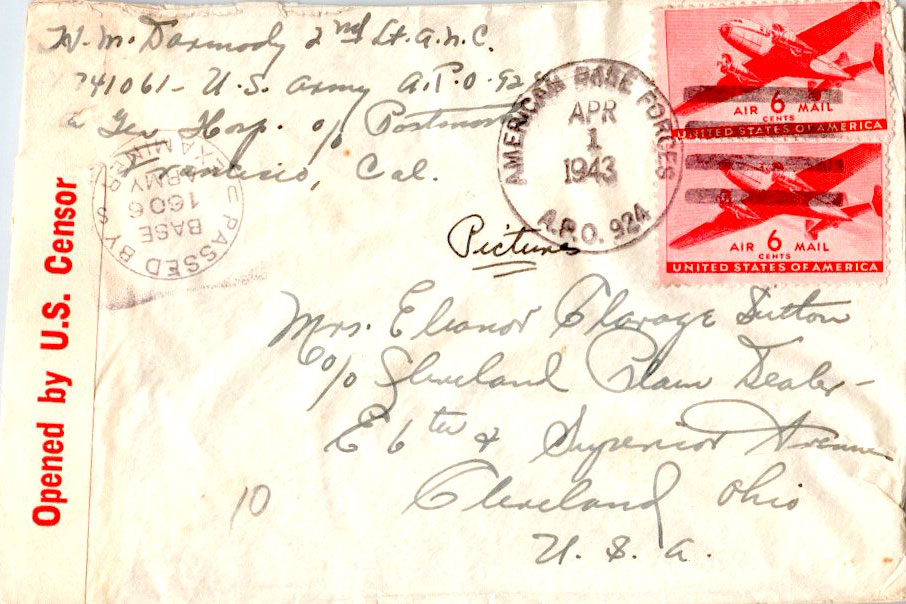 W. M. Darmody 2nd Lt. A.N.C.
741061 - U.S. Army A.P.O. 924
Gen Hosp. c/o Postmaster
Francisco, Cal.
AMERICAN BASE FORCES
APR
1
1943
A.P.O. 924
AIR 6 MAIL
CENTS
UNITED STATES OF AMERICA
AIR 6 MAIL
CENTS
UNITED STATES OF AMERICA
PASSED BY
BASE
1606
ARMY
EXAMINER
Opened by U.S. Censor
Pictures
Mrs. Eleanor Clarage Sutton
c/o Cleveland Plain Dealer -
E 6th & Superior Avenue
Cleveland Ohio
U. S. A.
10